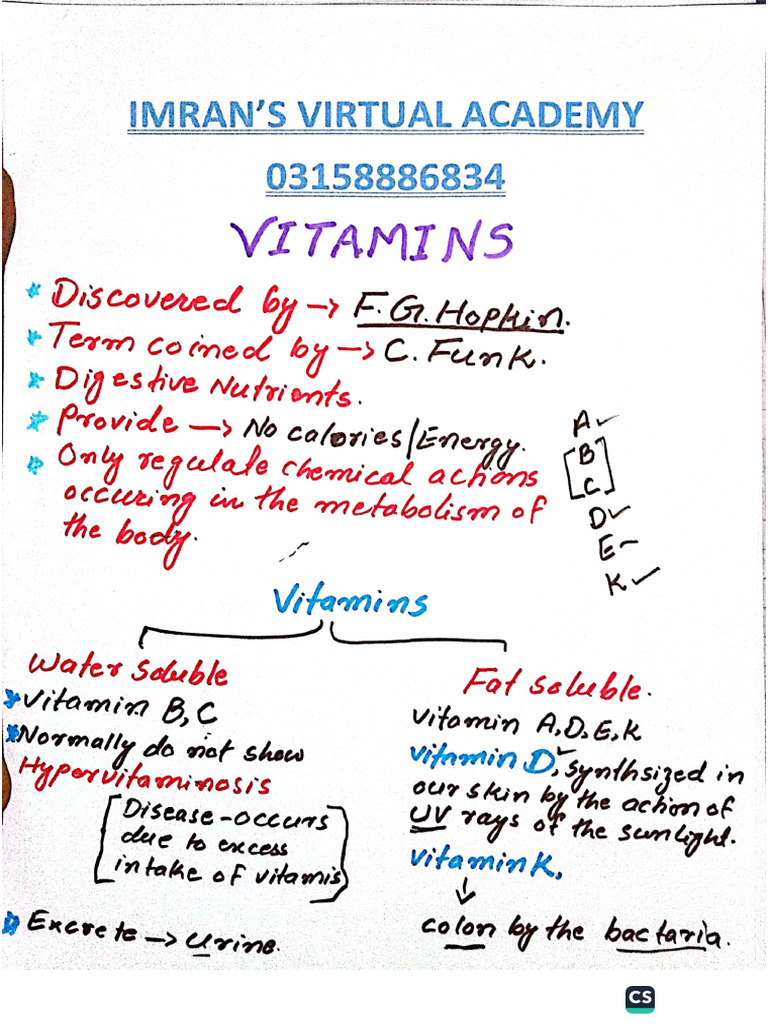 IMRAN'S VIRTUAL ACADEMY
03158886834
VITAMINS
* Discovered by → F.G.Hopkin.
* Term coined by → C. Funk.
* Digestive Nutrients.
* Provide → No calories/Energy.
* Only regulate chemical actions
occuring in the metabolism of
the body.
A ✓
B
C
D ✓
E
K ✓
Vitamins
Water soluble
* Vitamin B, C
* Normally do not show
Hypervitaminosis
[Disease-occurs
due to excess
intake of vitamis]
* Excrete → Urine.
Fat soluble.
vitamin A,D,E,K
vitamin D, synthsized in
our skin by the action of
UV rays of the sunlight.
vitamin K,
↓
colon by the bactaria.
CS